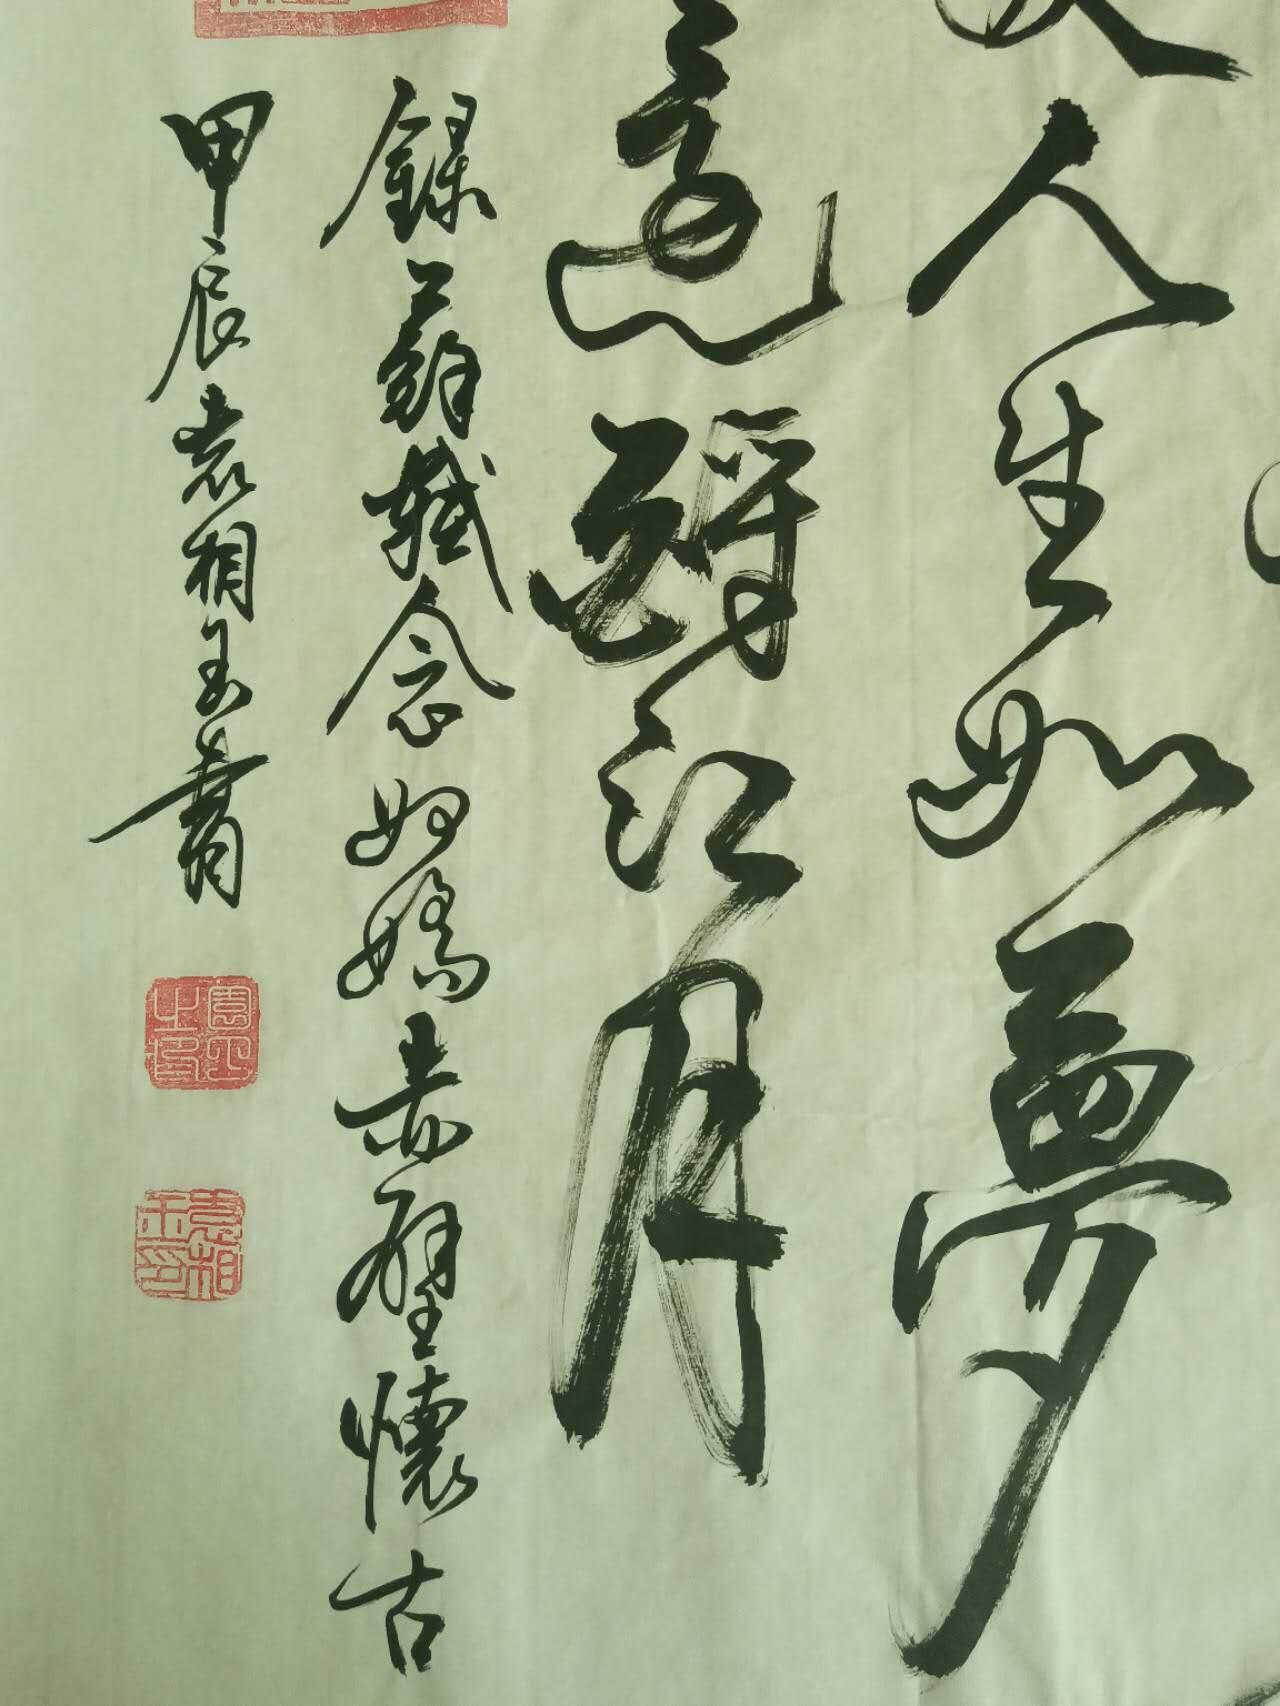 人生如夢
還酹江月
錄蘇軾念奴嬌赤壁懷古
甲辰袁相玉書
袁相玉印